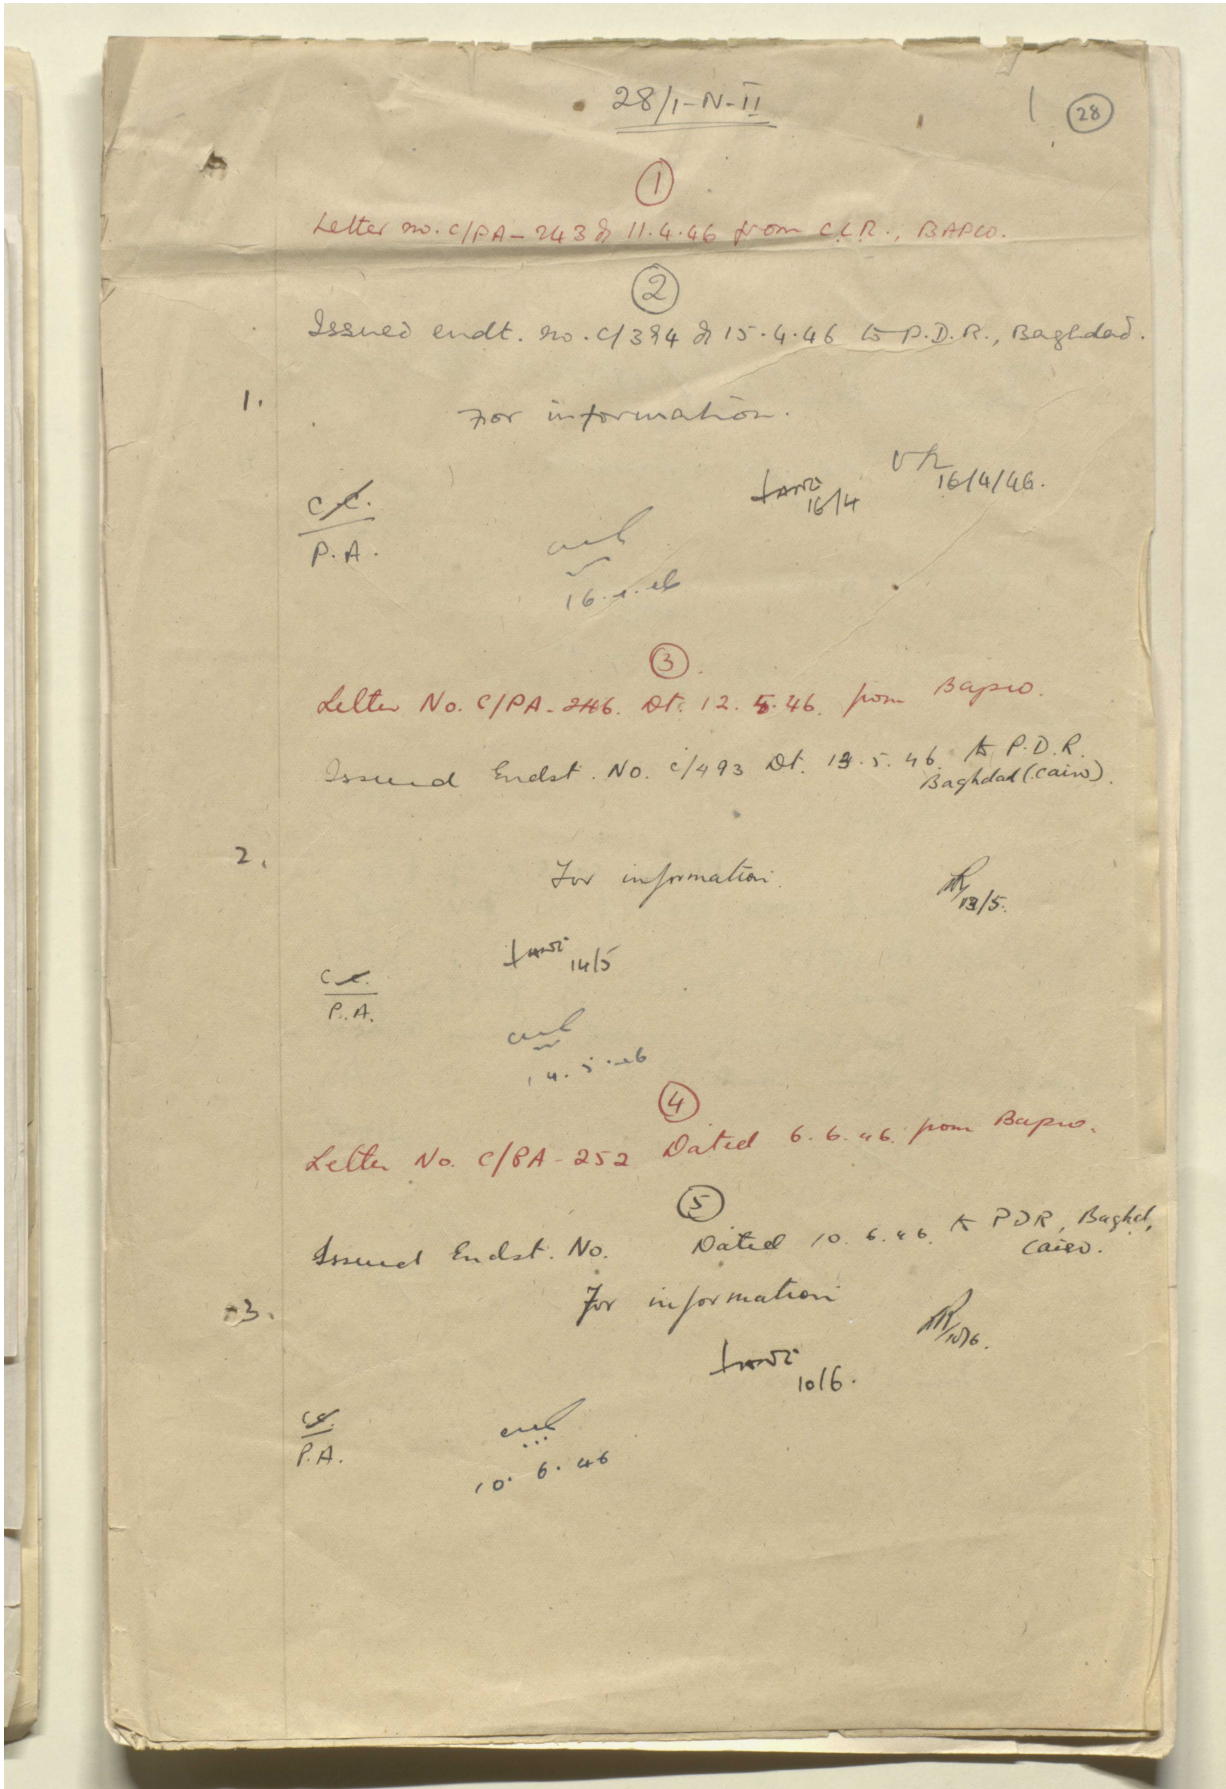 28/1-N-II
1 28
1
Letter no. C/PA-243 of 11.4.46 from C.L.R., BAPCO.
2
Issued endt. no. C/394 of 15.4.46 to P.D.R., Baghdad.
1.
For information.
16/4
16/4/46.
C.C.
P.A.
16.4.46
3
Letter No. C/PA-246. Dt. 12.5.46. from Bapco.
Issued Endst. No. C/493 Dt. 13.5.46. to P.D.R.
Baghdad (Cairo).
2.
For information.
13/5.
14/5
C.C.
P.A.
14.5.46
4
Letter No. C/PA-252 Dated 6.6.46. from Bapco.
5
Issued Endst. No. Dated 10.6.46. to PDR, Baghd,
Cairo.
3.
For information
10/6.
10/6.
C.C.
P.A.
10.6.46